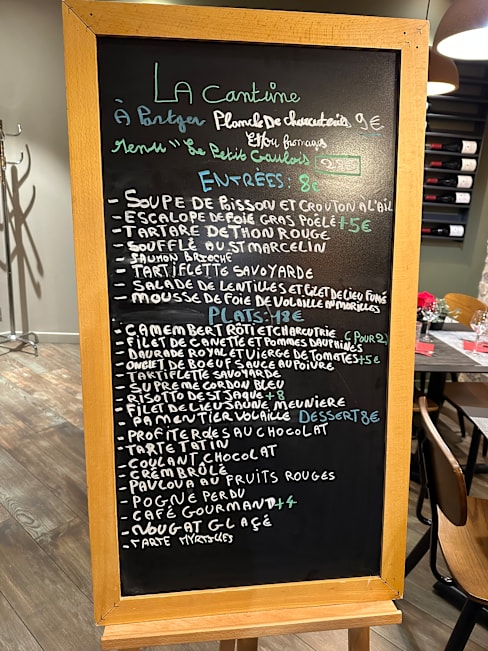 LA Cantine
À Partger Planche De charcuteries 9€
Et/ou fromages
Menu "Le Petit Gaulois
ENTRÉES: 8€
- SOUPE DE POISSON ET CROUTON A L'AIL
- ESCALOPE DE FOIE GRAS POÊLÉ +5€
- TARTARE DE THON ROUGE
- SOUFFLÉ AU ST MARCELIN
- SAUMON BRIOCHE
- TARTIFLETTE SAVOYARDE
- SALADE DE LENTILLES ET FILET DE LIEU FUMÉ
- MOUSSE DE FOIE DE VOLAILLE AU MORILLES
PLATS: 18€
- CAMEMBERT ROTI ET CHARCUTRIE (POUR 2)
- FILET DE CANETTE ET POMMES DAUPHINES
- DAURADE ROYAL ET VIERGE DE TOMATES +5€
- ONGLET DE BOEUF SAUCE AU POIVRE
- TARTIFLETTE SAVOYARDE
- SUPREME CORDON BLEU
- RISOTTO DE ST JAQUE +8
- FILET DE LIEU JAUNE MEUNIERE
- PARMENTIER VOLAILLE DESSERT 8€
- PROFITEROLES AU CHOCOLAT
- TARTE TATIN
- COULANT CHOCOLAT
- CRÈM BRÛLÉ
- PAVLOVA AU FRUITS ROUGES
- POGNE PERDU
- CAFÉ GOURMAND +4
- NOUGAT GLAÇÉ
- TARTE MYRTILLES